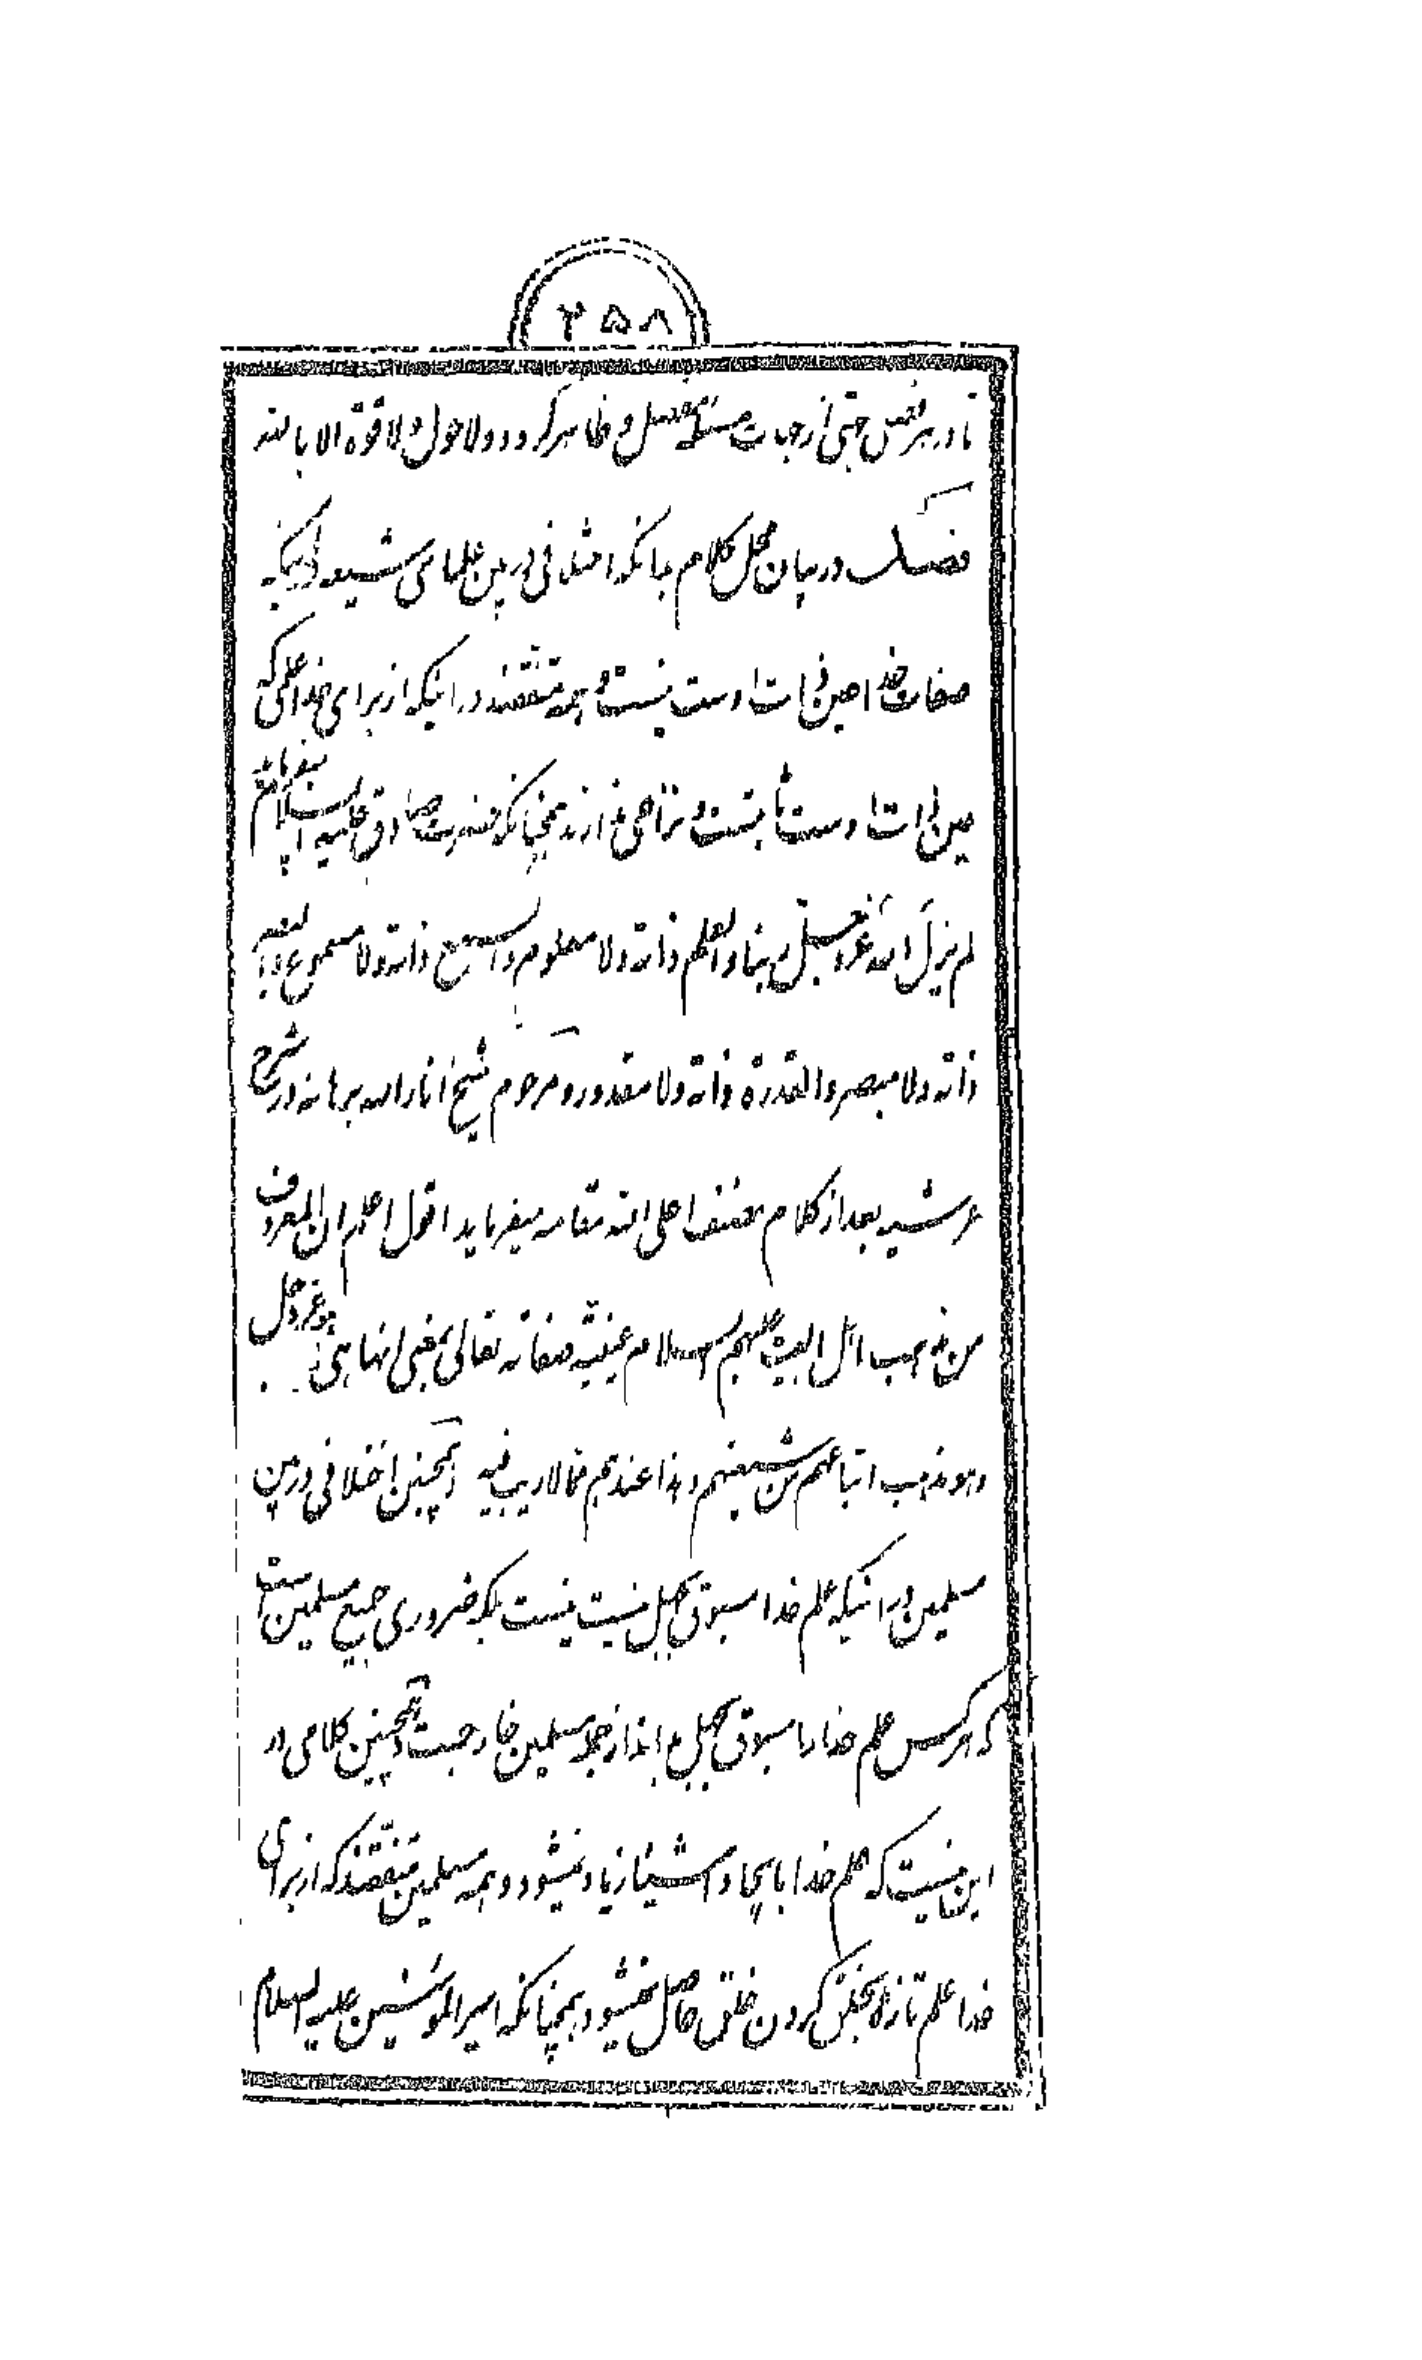 ۲۵۸
تا در هر فصل جهتی از جهات مسئله مفصل و ظاهر گردد ولا حول ولا قوة الا بالله
فصل در بیان محل کلام بدانکه اختلافی در بین علمای شیعه در اینکه
صفات خدا عین ذات اوست نیست و همه متفقند در اینکه از برای خدا علمی که
عین ذات اوست ثابتست و نزاعی ندارند همچنانکه حضرت صادق علیه السلام میفرماید
لم یزل الله عز و جل ربنا و العلم ذاته ولا معلوم و السمع ذاته ولا مسموع و البصر
ذاته ولا مبصر و القدرة ذاته ولا مقدور و مرحوم شیخ انار الله برهانه در شرح
عرشیه بعد از کلام مصنف اعلی الله مقامه میفرماید اقول اعلم ان المعروف
من مذهب اهل البیت علیهم السلام عینیة صفاته تعالی بمعنی انها هی هو عز و جل
و هو مذهب اتباعهم من شیعتهم و هذا عندهم مما لا ریب فیه و همچنین اختلافی در بین
مسلمین در اینکه علم خدا مسبوق بجهل نیست نیست بلکه ضروری جمیع مسلمین است
که هر کس علم خدا را مسبوق بجهل بداند از جمله مسلمین خارجست و همچنین کلامی در
این نیست که علم خدا بایجاد اشیا زیاد نمیشود و همه مسلمین متفقند که از برای
خدا علم تازهٔ بخلق کردن خلق حاصل نمیشود همچنانکه امیر المؤمنین علیه السلام